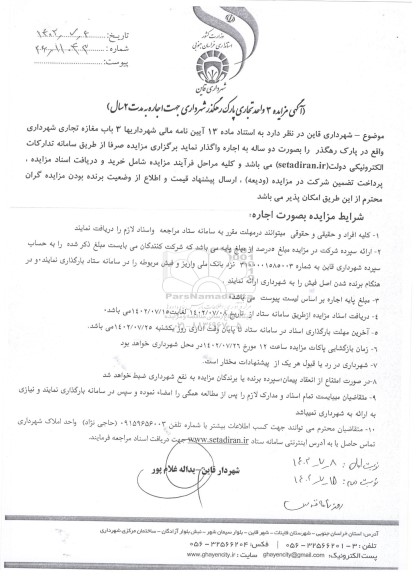 وزارت کشور
استانداری خراسان جنوبی
شهرداری قاین
تاریخ: ۱۴۰۲/۷/۴
شماره:
پیوست:
(آگهی مزایده ۳ واحد تجاری پارک رهگذر شهرداری جهت اجاره به مدت ۲سال)
موضوع – شهرداری قاین در نظر دارد به استناد ماده ۱۳ آیین نامه مالی شهرداریها ۳ باب مغازه تجاری شهرداری
واقع در پارک رهگذر را بصورت دو ساله به اجاره واگذار نماید برگزاری مزایده صرفا از طریق سامانه تدارکات
الکترونیکی دولت(setadiran.ir) می باشد و کلیه مراحل فرآیند مزایده شامل خرید و دریافت اسناد مزایده ،
پرداخت تضمین شرکت در مزایده (ودیعه) ، ارسال پیشنهاد قیمت و اطلاع از وضعیت برنده بودن مزایده گران
محترم از این طریق امکان پذیر می باشد
شرایط مزایده بصورت اجاره:
۱- کلیه افراد و حقیقی و حقوقی میتوانند درمهلت مقرر به سامانه ستاد مراجعه واسناد لازم را دریافت نمایند
۲- ارائه سپرده شرکت در مزایده مبلغ ۵درصد از مبلغ پایه می باشد که شرکت کنندگان می بایست مبلغ ذکر شده را به حساب
سپرده شهرداری قاین به شماره نزد بانک ملی واریز و فیش مربوطه را در سامانه ستاد بارگذاری نمایند و در
هنگام برنده شدن اصل فیش را به شهرداری ارائه نمایند
۳- مبلغ پایه اجاره بر اساس لیست پیوست می باشد
۴- دریافت اسناد مزایده ازطریق سامانه ستاد از تاریخ ۱۴۰۲/۰۷/۰۸ لغایت۱۴۰۲/۰۷/۱۵می باشد.
۵- آخرین مهلت بارگذاری اسناد در سامانه ستاد تا پایان وقت اداری روز یکشنبه ۱۴۰۲/۰۷/۲۵می باشد
۶- زمان بازگشایی پاکات مزایده ساعت ۱۲ مورخ ۱۴۰۲/۰۷/۲۶در محل شهرداری خواهد بود
۷- شهرداری در رد یا قبول هر یک از پیشنهادات مختار است.
۸-در صورت امتناع از انعقاد پیمان،سپرده برنده یا برندگان مزایده به نفع شهرداری ضبط خواهد شد
۹- متقاضیان میبایست تمام اسناد و مدارک لازم را پس از مطالعه همگی را امضاء نموده و سپس در سامانه بارگذاری نمایند و نیازی
به ارائه به شهرداری نمیباشد
۱۰- متقاضیان محترم می توانند جهت کسب اطلاعات بیشتر با شماره تلفن ۰۹۱۵۹۶۵۶۰۰۳ (حاجی نژاد) واحد املاک شهرداری
تماس حاصل یا به آدرس اینترنتی سامانه ستاد www.setadiran.ir جهت دریافت اسناد مراجعه فرمایند.
شهردار قاین – یداله غلام پور
نوبت اول: ۱۴۰۲/۷/۸
نوبت دوم: ۱۴۰۲/۷/۱۵
روزنامه قدس
آدرس: استان خراسان جنوبی - شهرستان قاینات - شهر قاین - بلوار سیمان شهر - نبش بلوار آزادگان - ساختمان مرکزی شهرداری
تلفن: ۳-۳۲۵۶۶۲۰۱ - ۰۵۶ فکس: ۳۲۵۶۶۲۰۴ - ۰۵۶
پست الکترونیک: ghayencity@gmail.com وب سایت: www.ghayencity.ir